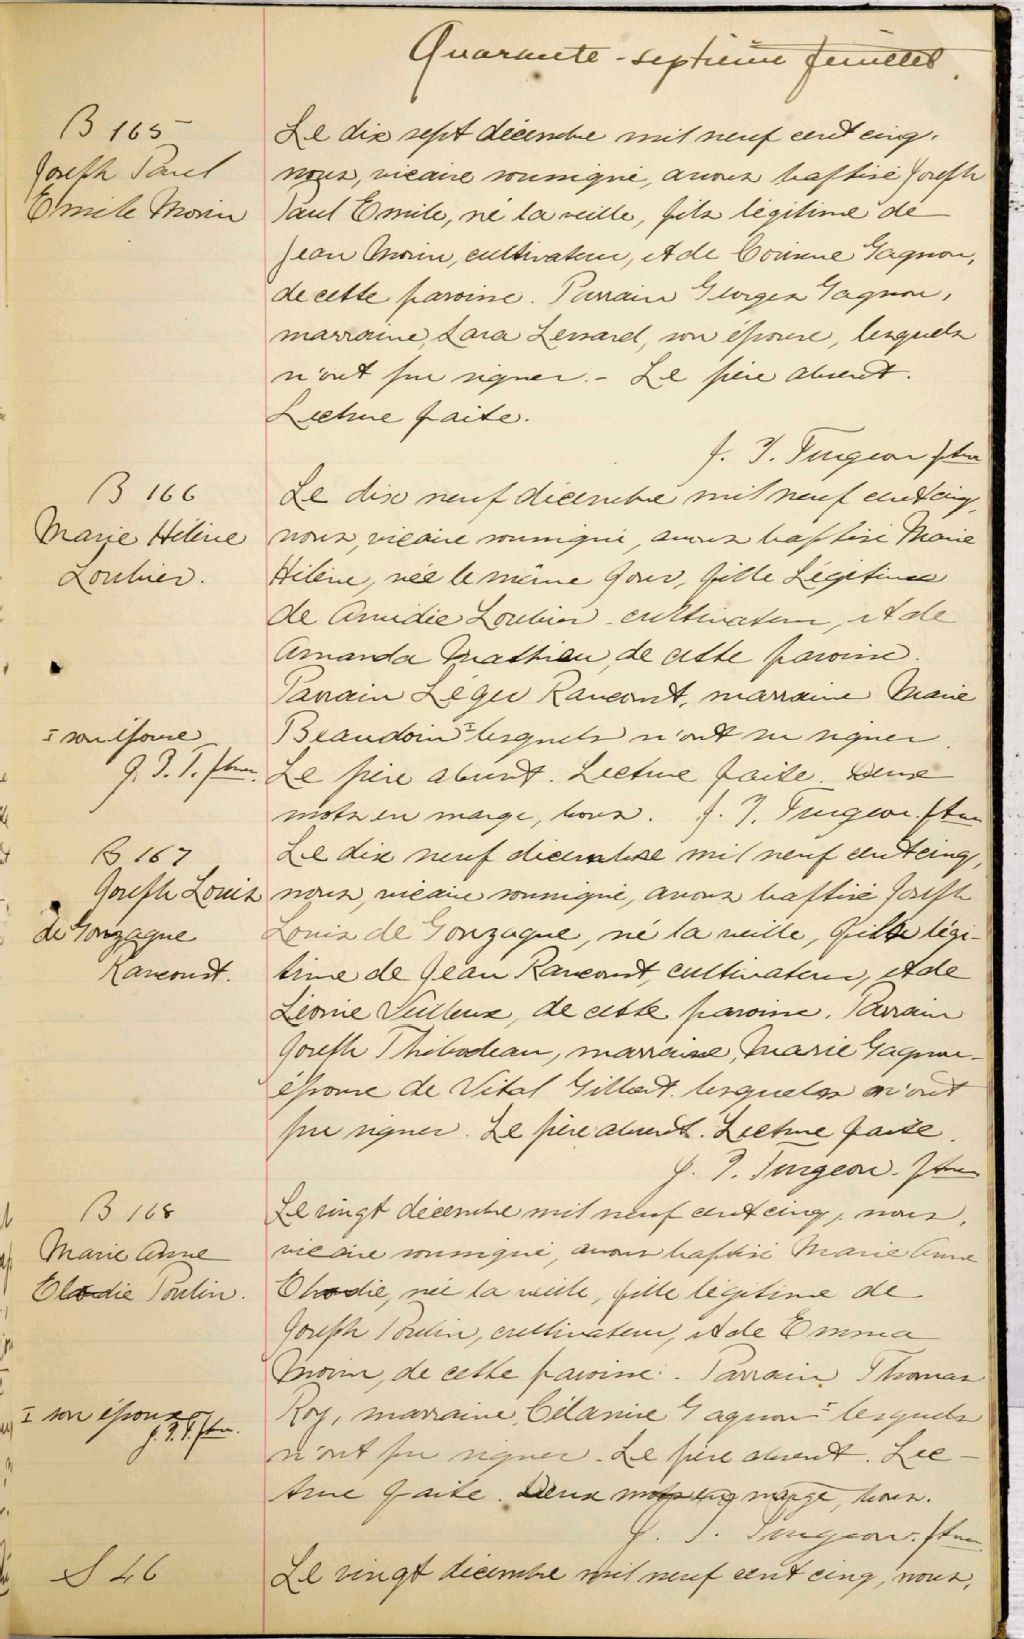 Quarante-septième feuillet.
B 165
Joseph Paul
Emile Morin
Le dix sept décembre mil neuf cent cinq,
nous, vicaire soussigné, avons baptisé Joseph
Paul Emile, né la veille, fils légitime de
Jean Morin, cultivateur, et de Corinne Gagnon,
de cette paroisse. Parrain Georges Gagnon,
marraine, Lara Lessard, son épouse, lesquels
n'ont pu signer. - Le père absent.
Lecture faite.
J. T. Turgeon ptre
B 166
Marie Hélène
Loubier.
Le dix neuf décembre mil neuf cent cinq,
nous, vicaire soussigné, avons baptisé Marie
Hélène, née le même jour, fille légitime
de Amédie Loubier cultivateur, et de
Amanda Mathieu, de cette paroisse.
Parrain Léger Rancourt, marraine Marie
Beaudoin I lesquels n'ont su signer
I son épouse
J. P. T. ptre.
Le père absent. Lecture faite. Deux
mots en marge, bons. J. P. Turgeon. ptre
B 167
Joseph Louis
de Gonzague
Rancourt.
Le dix neuf décembre mil neuf cent cinq,
nous, vicaire soussigné, avons baptisé Joseph
Louis de Gonzague, né la veille, fils légi-
time de Jean Rancourt, cultivateur, et de
Léonie Veilleux, de cette paroisse. Parrain
Joseph Thibodeau, marraine, Marie Gagnon
épouse de Vital Gilbert lesquels n'ont
pu signer. Le père absent. Lecture faite.
J. P. Turgeon. ptre
B 168
Marie Anne
Elodie Poulin.
Le vingt décembre mil neuf cent cinq, nous,
vicaire soussigné, avons baptisé Marie Anne
Elodie, née la veille, fille légitime de
Joseph Poulin, cultivateur, et de Emma
Morin, de cette paroisse. Parrain Thomas
Roy, marraine, Célanire Gagnon I lesquels
I son épouse
J. P. T. ptre.
n'ont pu signer. Le père absent. Lec-
ture faite. Deux mots en marge, bons.
J. P. Turgeon. ptre.
S 46
Le vingt décembre mil neuf cent cinq, nous,